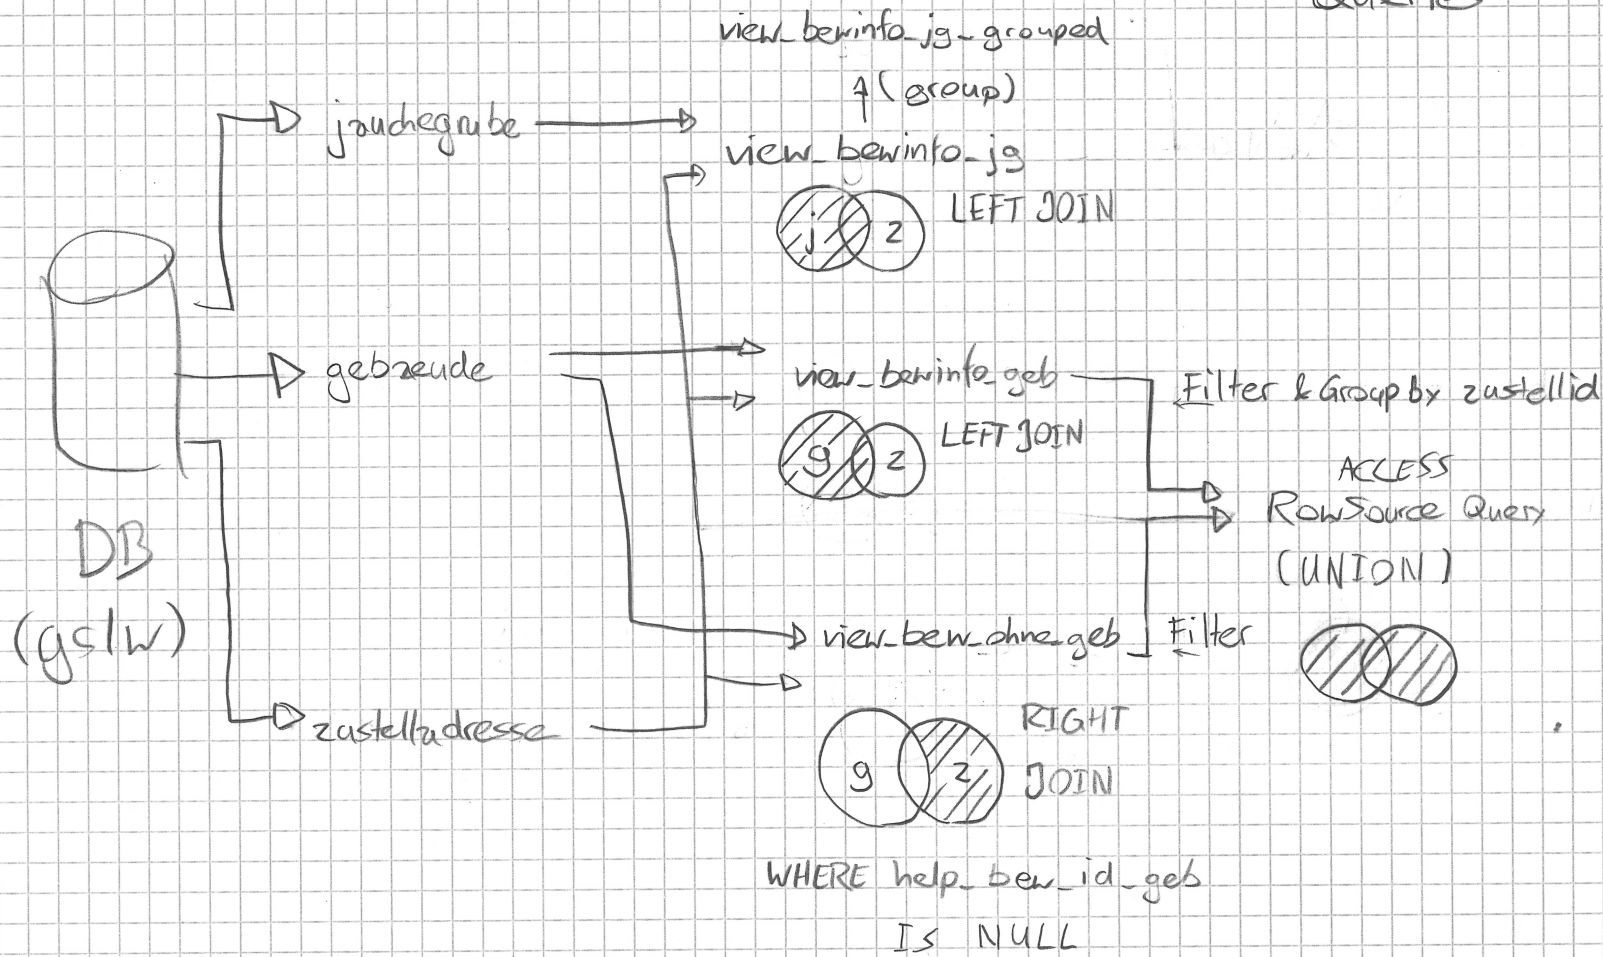 view_bewinfo_jg_grouped
(group)
jauchegrube
view_bewinfo_jg
LEFT JOIN
j
z
gebaeude
view_bewinfo_geb
Filter & Group by zustellid
LEFT JOIN
g
z
ACCESS
RowSource Query
(UNION)
DB
(gslw)
view_bew_ohne_geb
Filter
zustelladresse
RIGHT
JOIN
g
z
WHERE help_bew_id_geb
IS NULL